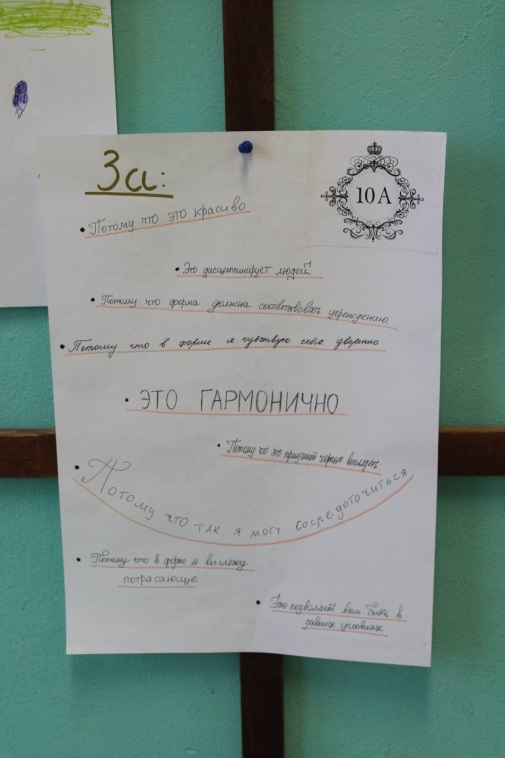 За:
10 А
• Потому что это красиво
• Это дисциплинирует людей
• Потому что форма должна соответствовать учреждению
• Потому что в форме я чувствую себя уверенно
• ЭТО ГАРМОНИЧНО
• Потому что это приучает хорошо выглядеть
• Потому что так я могу сосредоточиться
• Потому что в форме я выгляжу
потрясающе
• Это позволяет всем быть в
равных условиях